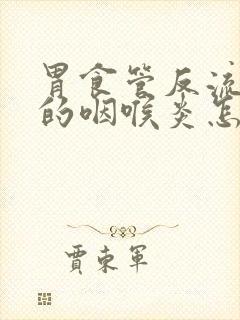 胃食管反流
的咽喉炎怎
贾东军